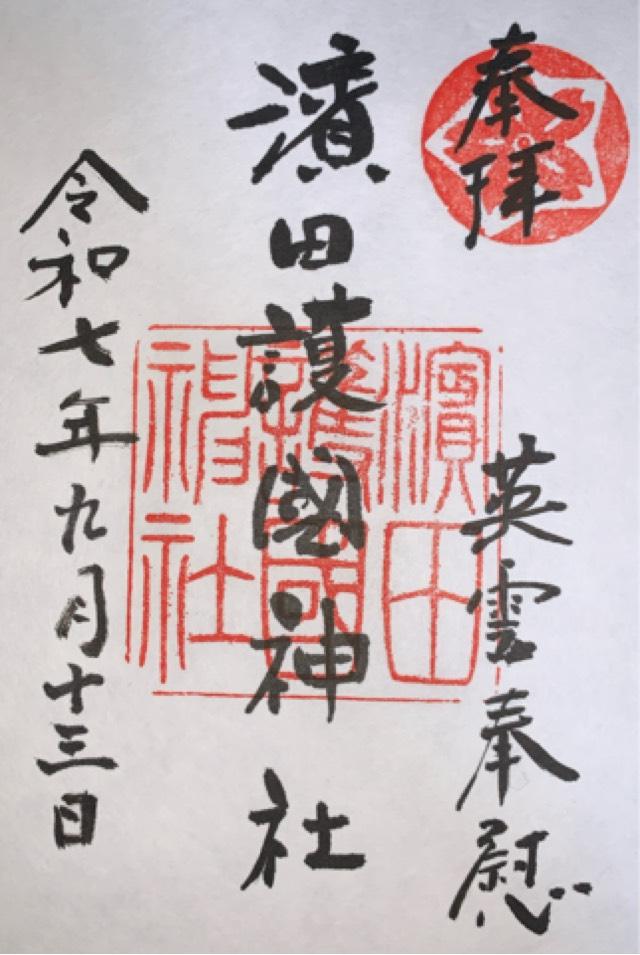 奉拝
英霊奉慰
濱田護國神社
濱田
護國
神社
令和七年九月十三日